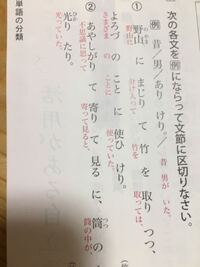 次の各文を例にならって文節に区切りなさい。
例 昔/男/ありけり。/昔 男が いた。
① 野山 に まじりて 竹 を 取り つつ、
のやま
野山に 分け入って 竹を 取っては、
よろづ の こと に 使ひ けり。
さまざま の ことに 使っていた。
② あやしがり て 寄り 見る に、筒 の 中
つつ
不思議に思って 寄って見ると、 筒の中が
光り たり。
光っていた。
単語の分類